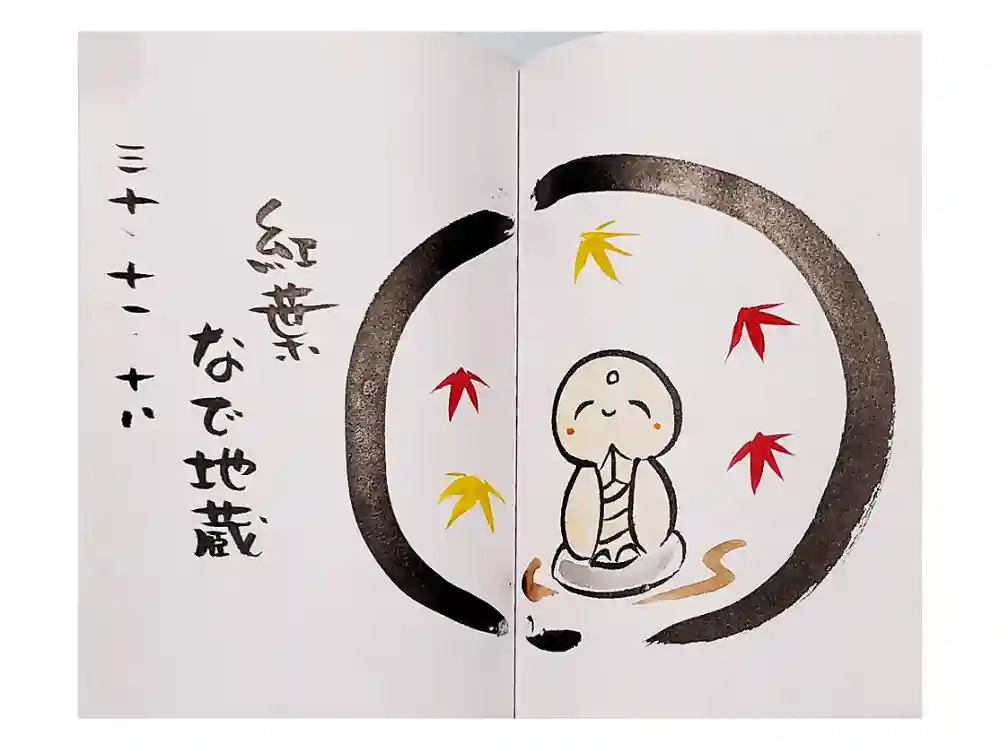 紅葉
なで地蔵
三十・十一・十八